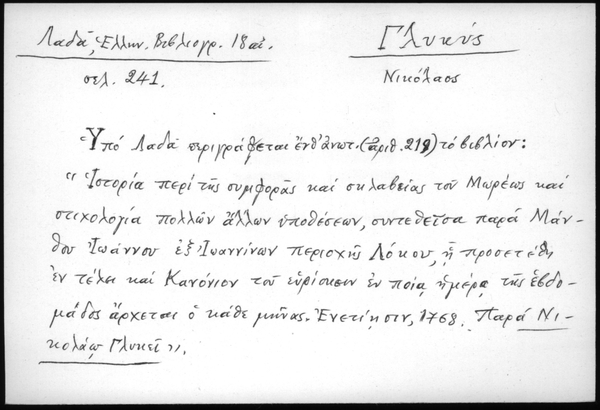 Λαδᾶ, Ἑλλην. Βιβλιογρ. 18 αἰ.
Γλυκύς
σελ. 241.
Νικόλαος
Ὑπό Λαδᾶ περιγράφεται ἐνθ' ἀνωτ. (ἀριθ. 219) τό βιβλίον:
"Ἱστορία περί τῆς συμφορᾶς καί σκλαβείας τοῦ Μωρέως καί
στιχολογία πολλῶν ἄλλων ὑποθέσεων, συντεθεῖσα παρά Μάν-
θου Ἰωάννου ἐξ Ἰωαννίνων περιοχῆς Λόκου, ᾗ προσετέθη
ἐν τέλει καί Κανόνιον τοῦ εὑρίσκειν ἐν ποίᾳ ἡμέρᾳ τῆς ἑβδο-
μάδος ἄρχεται ὁ κάθε μῆνας. Ἐνετίῃσιν, 1768. Παρά Νι-
κολάῳ Γλυκεῖ".